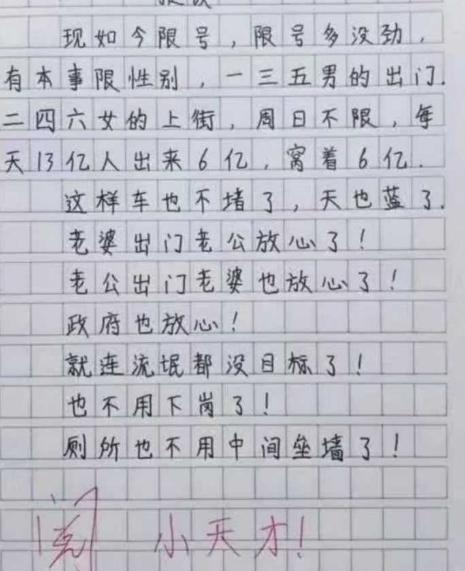 现如今限号，限号多没劲，
有本事限性别，一三五男的出门.
二四六女的上街，周日不限，每
天13亿人出来6亿，窝着6亿.
这样车也不堵了，天也蓝了.
老婆出门老公放心了！
老公出门老婆也放心了！
政府也放心！
就连流氓都没目标了！
也不用下岗了！
厕所也不用中间垒墙了！
阅 小天才！